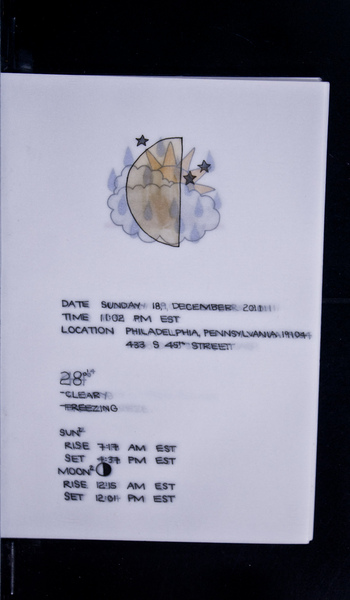 DATE SUNDAY 18, DECEMBER 2011
TIME PM EST
LOCATION PHILADELPHIA, PENNSYLVANIA 19104
433 S 45TH STREET
28
CLEAR
FREEZING
SUN
RISE 7:17 AM EST
SET 4:37 PM EST
MOON
RISE 12:15 AM EST
SET 12:01 PM EST